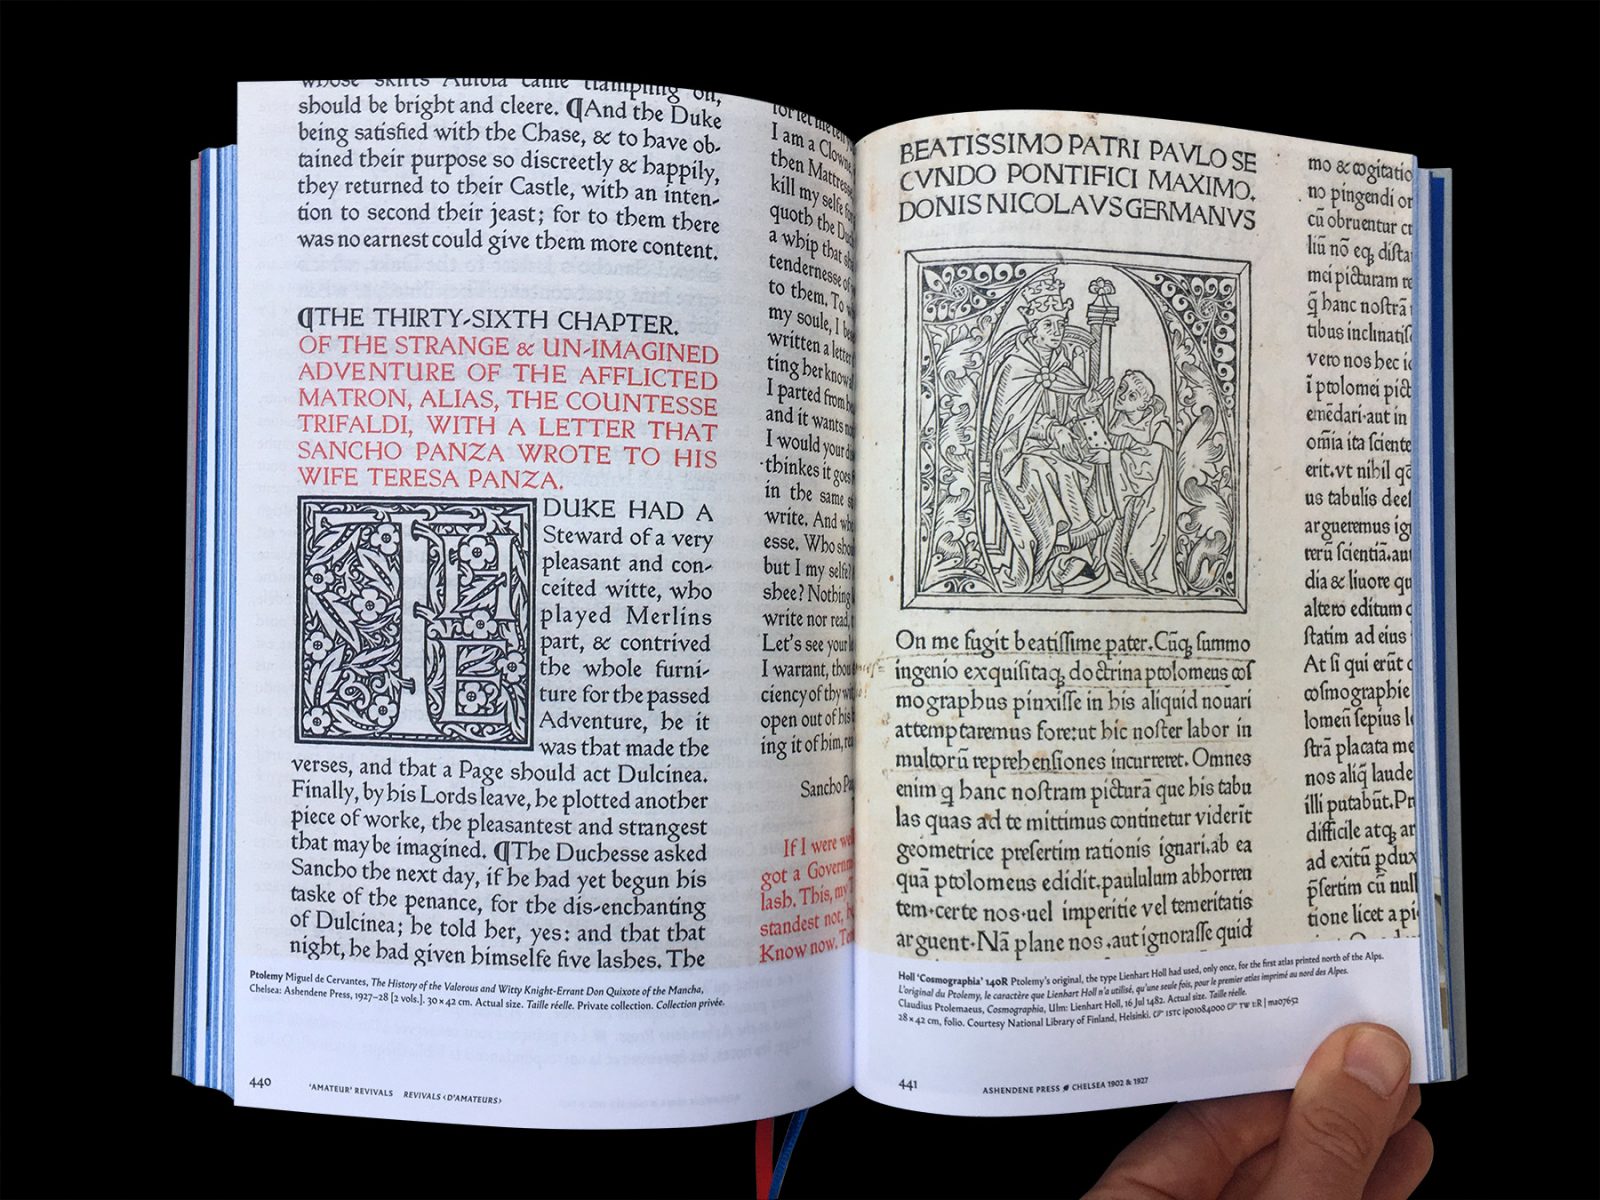 whose skirts Aurora came trampling on,
should be bright and cleere. ¶And the Duke
being satisfied with the Chase, & to have ob-
tained their purpose so discreetly & happily,
they returned to their Castle, with an inten-
tion to second their jeast; for to them there
was no earnest could give them more content.
¶THE THIRTY-SIXTH CHAPTER.
OF THE STRANGE & UN-IMAGINED
ADVENTURE OF THE AFFLICTED
MATRON, ALIAS, THE COUNTESSE
TRIFALDI, WITH A LETTER THAT
SANCHO PANZA WROTE TO HIS
WIFE TERESA PANZA.
THE
DUKE HAD A
Steward of a very
pleasant and con-
ceited witte, who
played Merlins
part, & contrived
the whole furni-
ture for the passed
Adventure, he it
was that made the
verses, and that a Page should act Dulcinea.
Finally, by his Lords leave, he plotted another
piece of worke, the pleasantest and strangest
that may be imagined. ¶The Duchesse asked
Sancho the next day, if he had yet begun his
taske of the penance, for the dis-enchanting
of Dulcinea; he told her, yes: and that that
night, he had given himselfe five lashes. The
I am a Clowne,
then Mattresse
kill my selfe for
quoth the
a whip that
tendernesse of
to them. To
my soule, I
written a letter
ting her know
I parted from
and it wants
I would your
thinkes it goes
in the same
write. And
esse. Who
but I my selfe?
shee? Nothing
write nor read,
Let's see your
I warrant, thou
ciency of thy
open out of his
ing it of him,
Sancho
If I were
got a
lash. This, my
standest not,
Know now.
Ptolemy Miguel de Cervantes, The History of the Valorous and Witty Knight-Errant Don Quixote of the Mancha,
Chelsea: Ashendene Press, 1927–28 [2 vols.]. 30 × 42 cm. Actual size. Taille réelle. Private collection. Collection privée.
440 'AMATEUR' REVIVALS REVIVALS ‹D'AMATEURS›
BEATISSIMO PATRI PAVLO SE
CVNDO PONTIFICI MAXIMO.
DONIS NICOLAVS GERMANVS
On me fugit beatiſſime pater. Cūq; ſummo
ingenio exquiſitaq; doctrina ptolomeus coſ
mographus pinxiſſe in his aliquid nouari
attemptaremus fore:ut hic noſter labor in
multorū reprehenſiones incurreret. Omnes
enim q hanc noſtram picturā que his tabu
las quas ad te mittimus continetur viderīt
geometrice preſertim rationis ignari.ab ea
quā ptolomeus edidit.paululum abhorren
tem.certe nos.uel imperitie vel temeritatis
arguent.Nā plane nos.aut ignoraſſe quid
mo & cogitatio
no pingendi
cū obruentur
liū nō eq;
mei picturam
q̄ hanc noſtrā
tibus
vero nos hec
ī ptolomei
emēdari.aut in
omīa ita ſciente
erit.vt nihil
us tabulis
argueremus
rerū ſcientiā.
dia & liuore
altero editum
ſtatim ad eius
At ſi qui erūt
coſmographie
ſepius
ſtrā placata me
nos aliq̄ laude
illi putabūt.
difficile atq; ar
ad exitū
p̄ſertim cū
tione licet a
Holl 'Cosmographia' 140R Ptolemy's original, the type Lienhart Holl had used, only once, for the first atlas printed north of the Alps.
L'original du Ptolemy, le caractère que Lienhart Holl n'a utilisé, qu'une seule fois, pour le premier atlas imprimé au nord des Alpes.
Claudius Ptolemaeus, Cosmographia, Ulm: Lienhart Holl, 16 Jul 1482. Actual size. Taille réelle.
28 × 42 cm, folio. Courtesy National Library of Finland, Helsinki. ☞ ISTC ip01084000 ☞ TW 1:R | ma07652
441 ASHENDENE PRESS CHELSEA 1902 & 1927